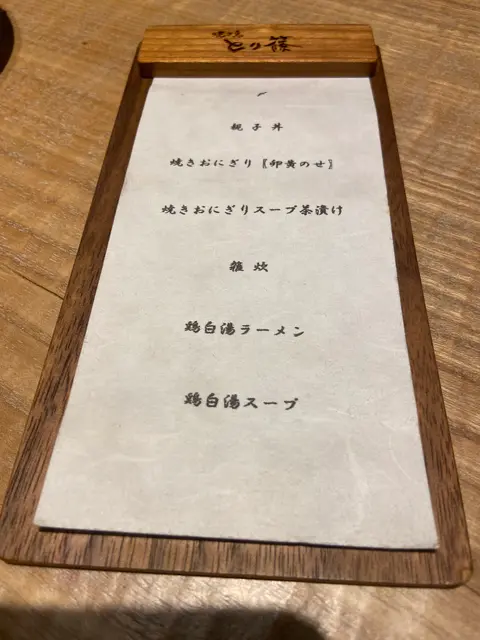 とり篠
〆
親子丼
焼きおにぎり〖卵黄のせ〗
焼きおにぎりスープ茶漬け
雑炊
鶏白湯ラーメン
鶏白湯スープ